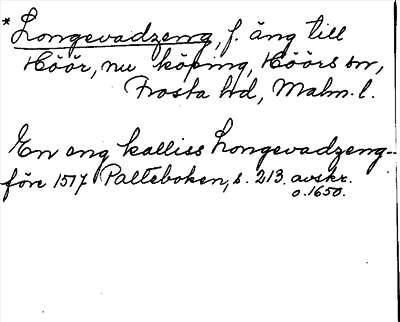 *Longevadzeng, f. äng till
Höör, nu köping, Höörs sn,
Frosta hd, Malm. l.
En eng kalliss Longevadzeng--
före 1517 Palteboken, s. 213. avskr.
o. 1650.